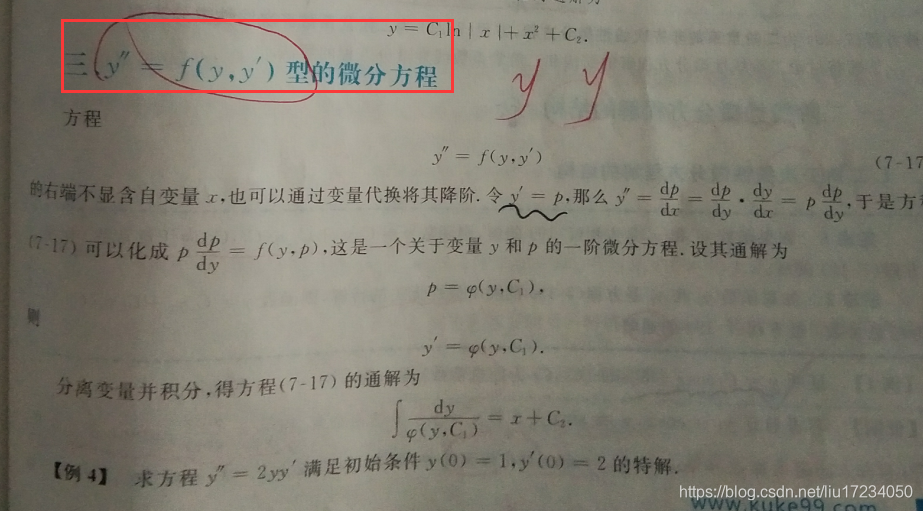 y = C₁ln | x | + x² + C₂.
三、y″ = f(y,y′) 型的微分方程
y y
方程
y″ = f(y,y′) (7-17
的右端不显含自变量 x,也可以通过变量代换将其降阶.令 y′ = p,那么 y″ = dp/dx = dp/dy · dy/dx = p dp/dy,于是方程
(7-17) 可以化成 p dp/dy = f(y,p),这是一个关于变量 y 和 p 的一阶微分方程.设其通解为
p = φ(y,C₁),
则
y′ = φ(y,C₁).
分离变量并积分,得方程(7-17) 的通解为
∫ dy/φ(y,C₁) = x + C₂.
【例 4】 求方程 y″ = 2yy′ 满足初始条件 y(0) = 1,y′(0) = 2 的特解.
https://blog.csdn.net/liu17234050
www.kuke99.com